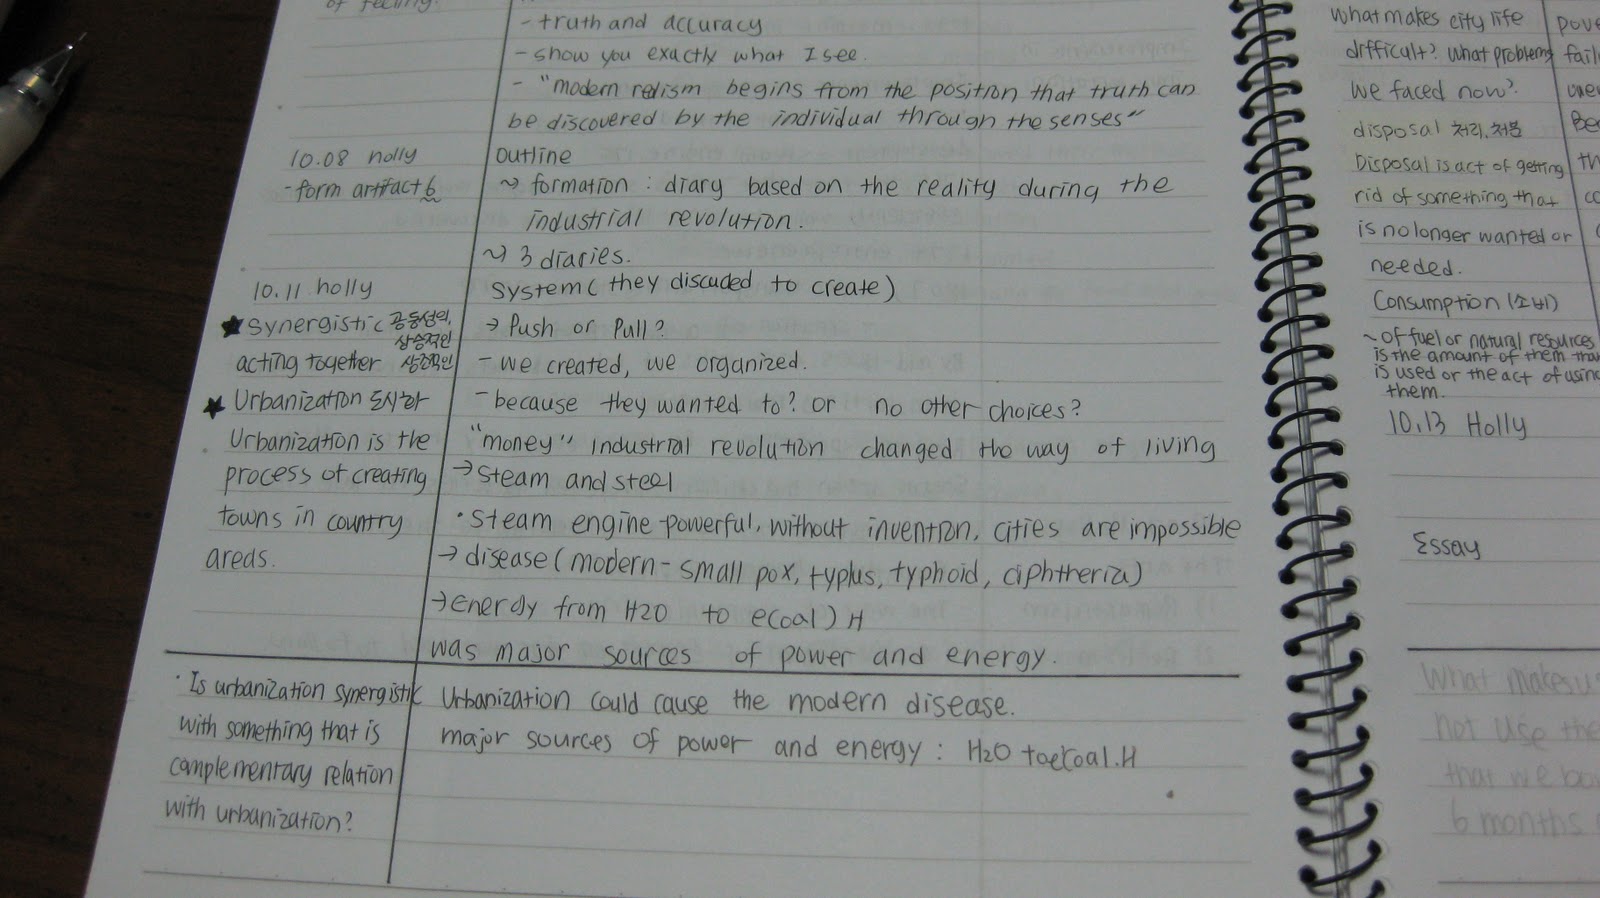 of feeling.
- truth and accuracy
- show you exactly what I see.
- "modern realism begins from the position that truth can
be discovered by the individual through the senses"
10.08 holly
- form artifact 6
Outline
~ formation : diary based on the reality during the
industrial revolution.
~ 3 diaries.
10.11 holly
★ Synergistic 공동성의,
상승적인
acting together 상조적인
★ Urbanization 도시화
Urbanization is the
process of creating
towns in country
areas.
System ( they discuded to create )
→ Push or Pull?
- we created, we organized.
- because they wanted to? or no other choices?
"money" industrial revolution changed the way of living
→ steam and steel
· Steam engine-powerful, without invention, cities are impossible
→ disease ( modern - small pox, typlus, typhoid, diphtheria)
→ energy from H2O to e(oal) H
was major sources of power and energy.
· Is urbanization synergistic
with something that is
complementary relation
with urbanization?
Urbanization could cause the modern disease.
major sources of power and energy : H2O to e(oal.H
What makes city life
difficult? What problems
we faced now?
disposal 처리, 처분
Disposal is act of getting
rid of something that
is no longer wanted or
needed.
Consumption (소비)
~ of fuel or natural resources
is the amount of them that
is used or the act of using
them.
10.13 Holly
Essay
What makes u
not use the
that we bo
6 months
pove
fail
Be
th
co